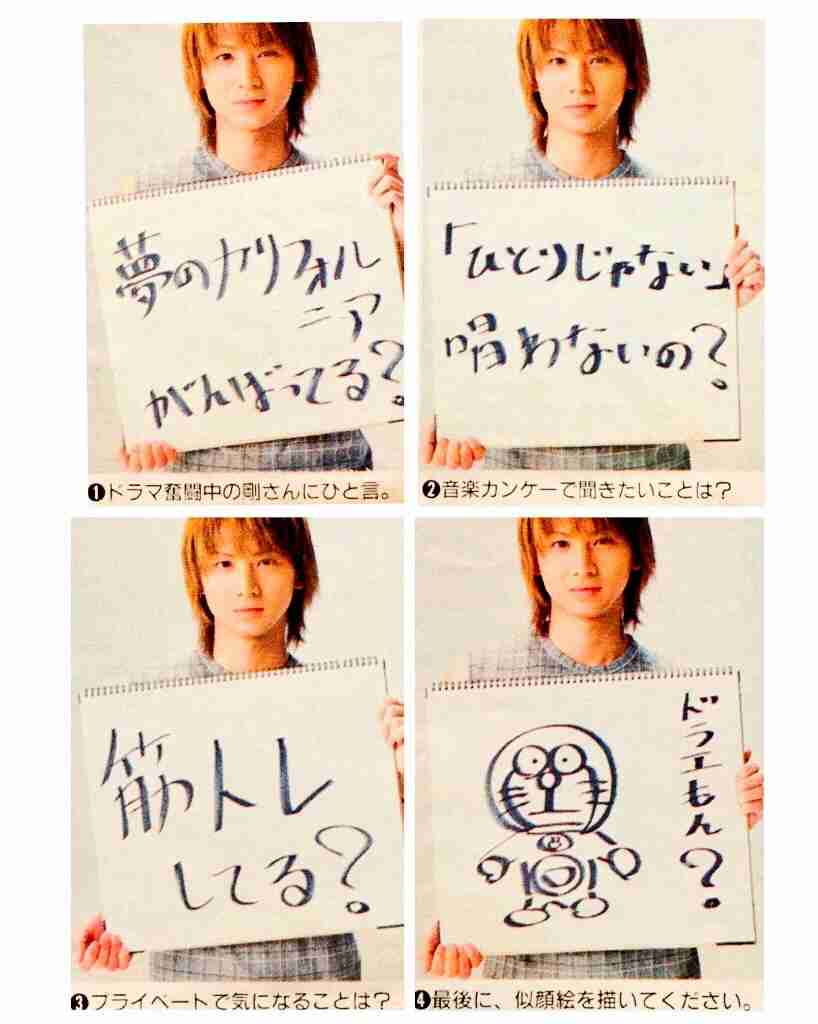 夢のカリフォル
ニア
がんばってる?
❶ドラマ奮闘中の剛さんにひと言。
「ひとりじゃない」
唱わないの?
❷音楽カンケーで聞きたいことは?
筋トレ
してる?
❸プライベートで気になることは?
ドラエもん?
❹最後に、似顔絵を描いてください。